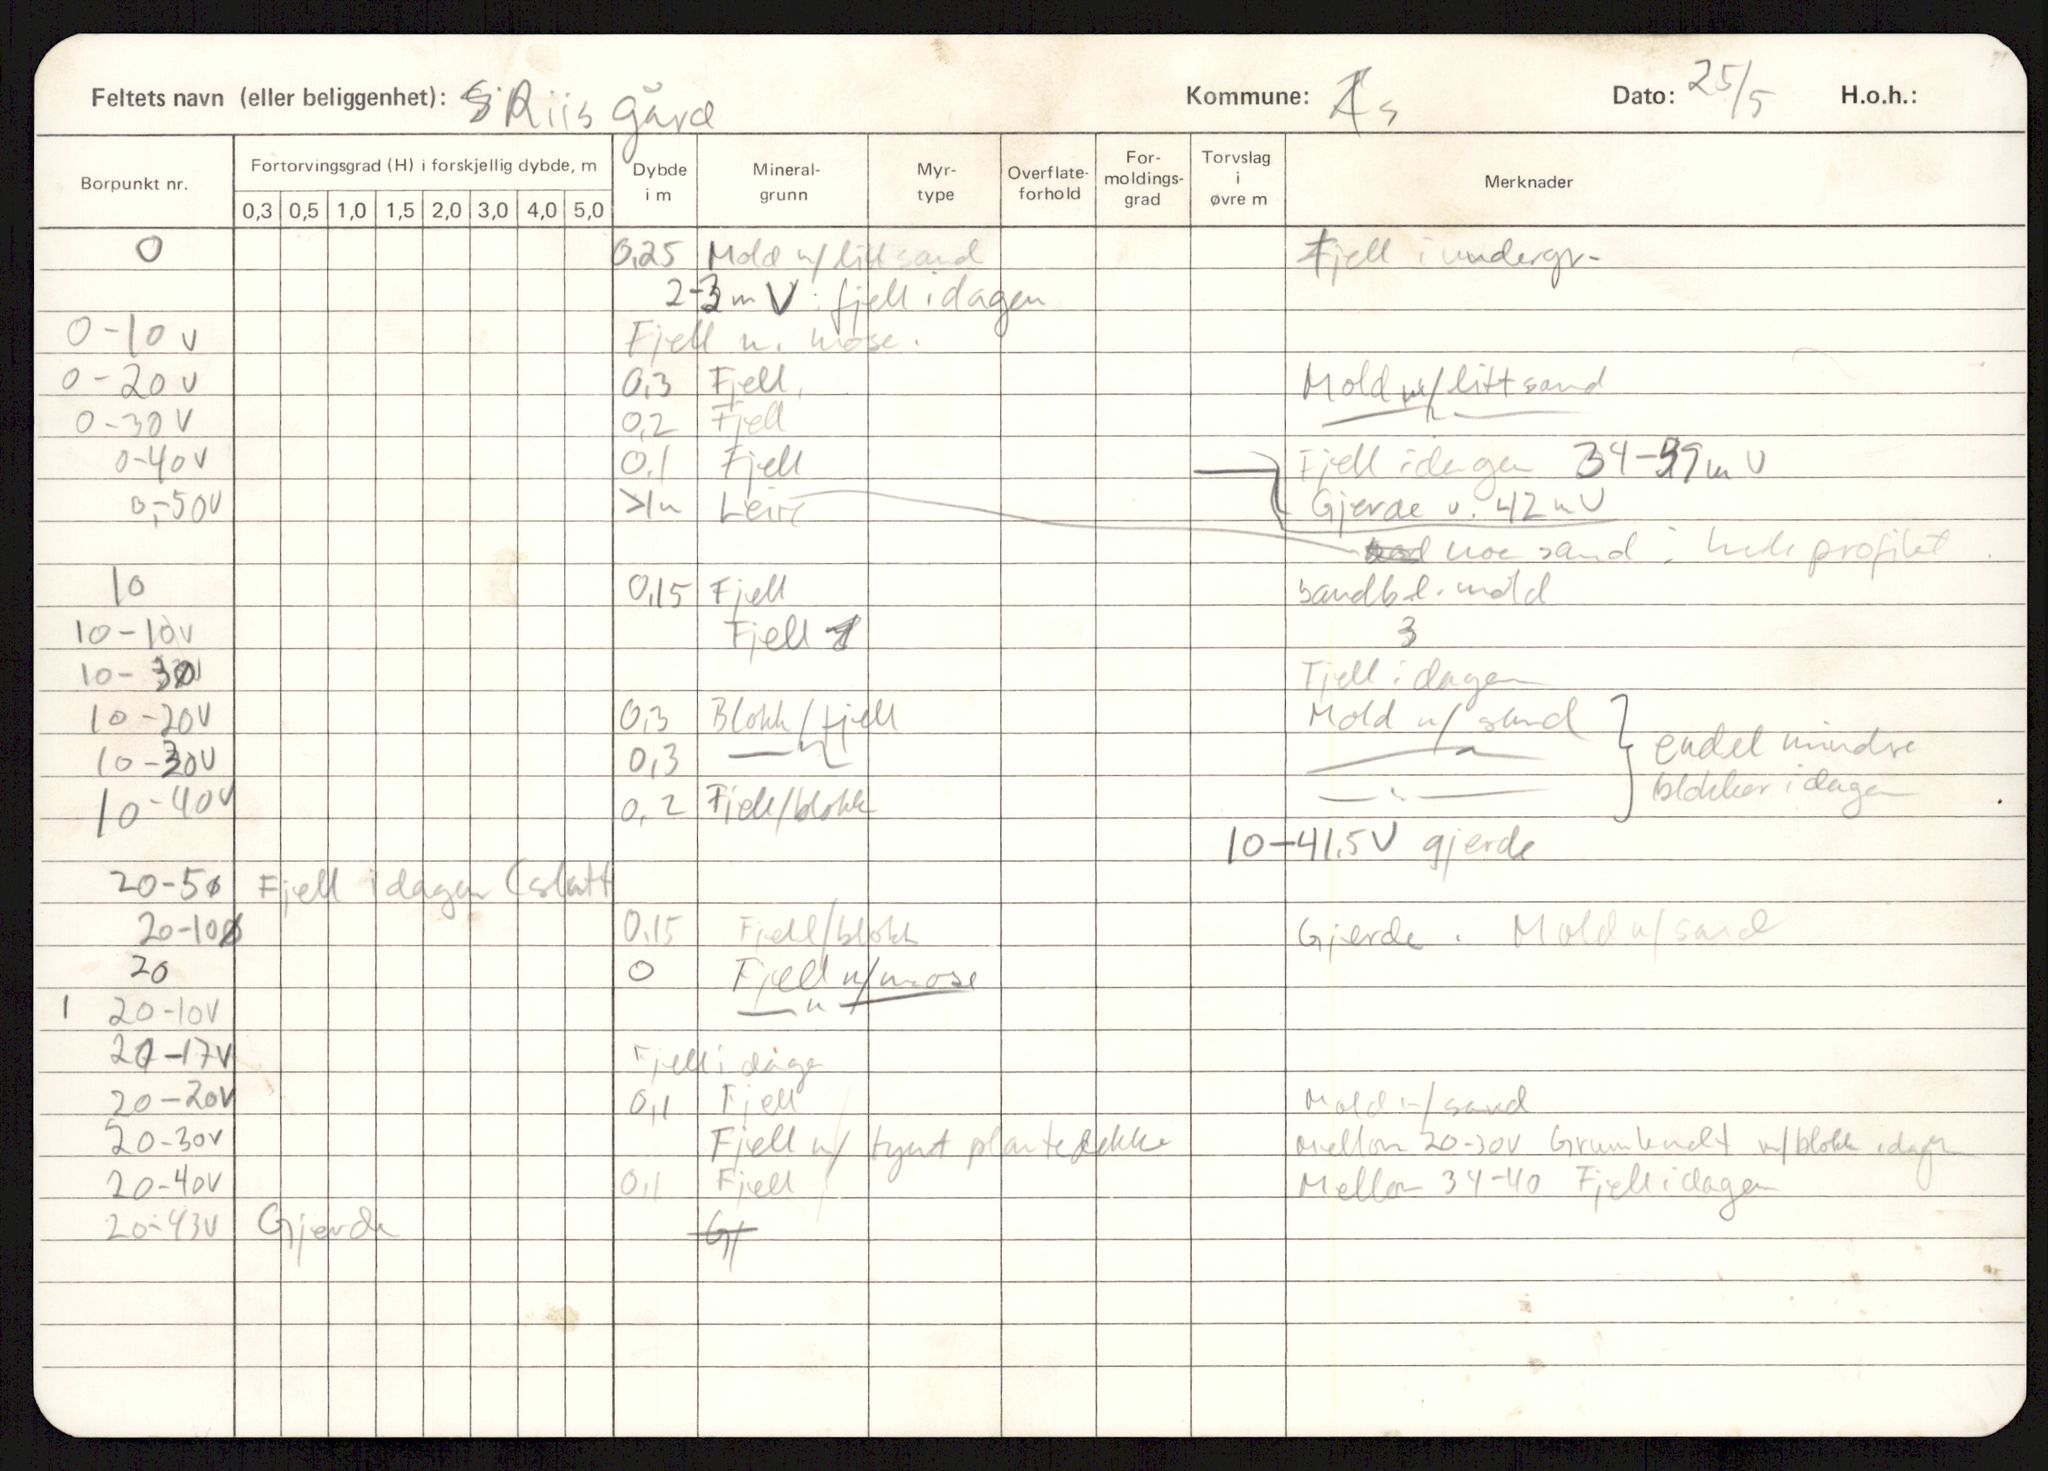 Feltets navn (eller beliggenhet): Riis gård Kommune: Ås Dato: 25/5 H.o.h.:
Borpunkt nr. Fortorvingsgrad (H) i forskjellig dybde, m Dybde i m Mineral-grunn Myr-type Overflate-forhold For-moldings-grad Torvslag i øvre m Merknader
0,3 0,5 1,0 1,5 2,0 3,0 4,0 5,0
0 0,25 Mold m/litt sand Fjell i undergr-
2-3 m V: fjell i dagen
0-10 V Fjell m. mose.
0-20 V 0,3 Fjell Mold m/litt sand
0-30 V 0,2 Fjell — " —
0-40 V 0,1 Fjell Fjell i dagen 34-39 m V
0-50 V >1m Leire Gjerde v. 42 m V
noe sand i hele profilet
10 0,15 Fjell sandbl. mold
10-10V Fjell 3
10-30 Fjell i dagen
10-20V 0,3 Blokk/fjell Mold m/sand
10-30V 0,3 — " — — " — endel mindre
10-40V 0,2 Fjell/blokk — " — blokker i dagen
10-41.5V gjerde
20-5ø Fjell i dagen (slett
20-10ø 0,15 Fjell/blokk Gjerde. Mold m/sand
20 0 Fjell m/mose
1 20-10V — " —
20-17V Fjell i dage
20-20V 0,1 Fjell Mold m/sand
20-30V Fjell m/ tynt plantedekke Mellom 20-30V Grunnlendt m/blokk i dagen
20-40V 0,1 Fjell Mellom 34-40 Fjell i dagen
20-43V Gjerde Gj